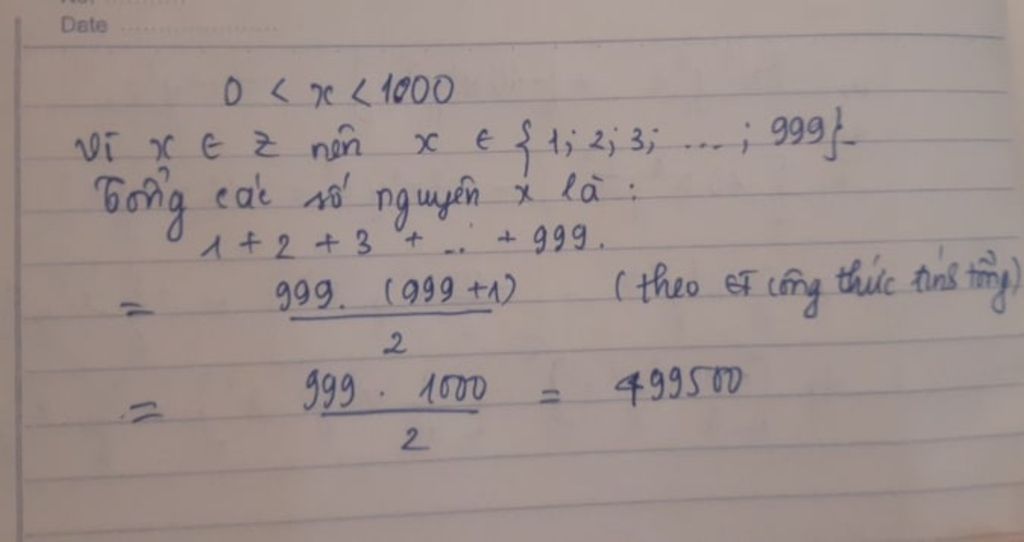 Date
0 < x < 1000
Vì x ∈ Z nên x ∈ {1; 2; 3; ...; 999}.
Tổng các số nguyên x là:
1 + 2 + 3 + ... + 999.
= 999. (999 + 1) / 2 (theo công thức tính tổng)
= 999 . 1000 / 2 = 499500